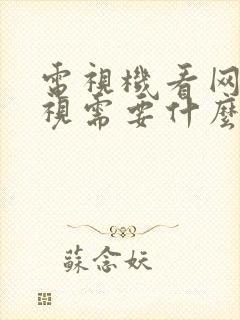 電視機看网
視需要什麼
蘇念妖